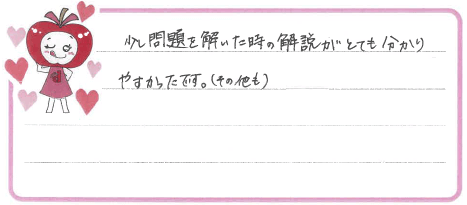 少し問題を解いた時の解説がとても分かり
やすかったです。(その他も)